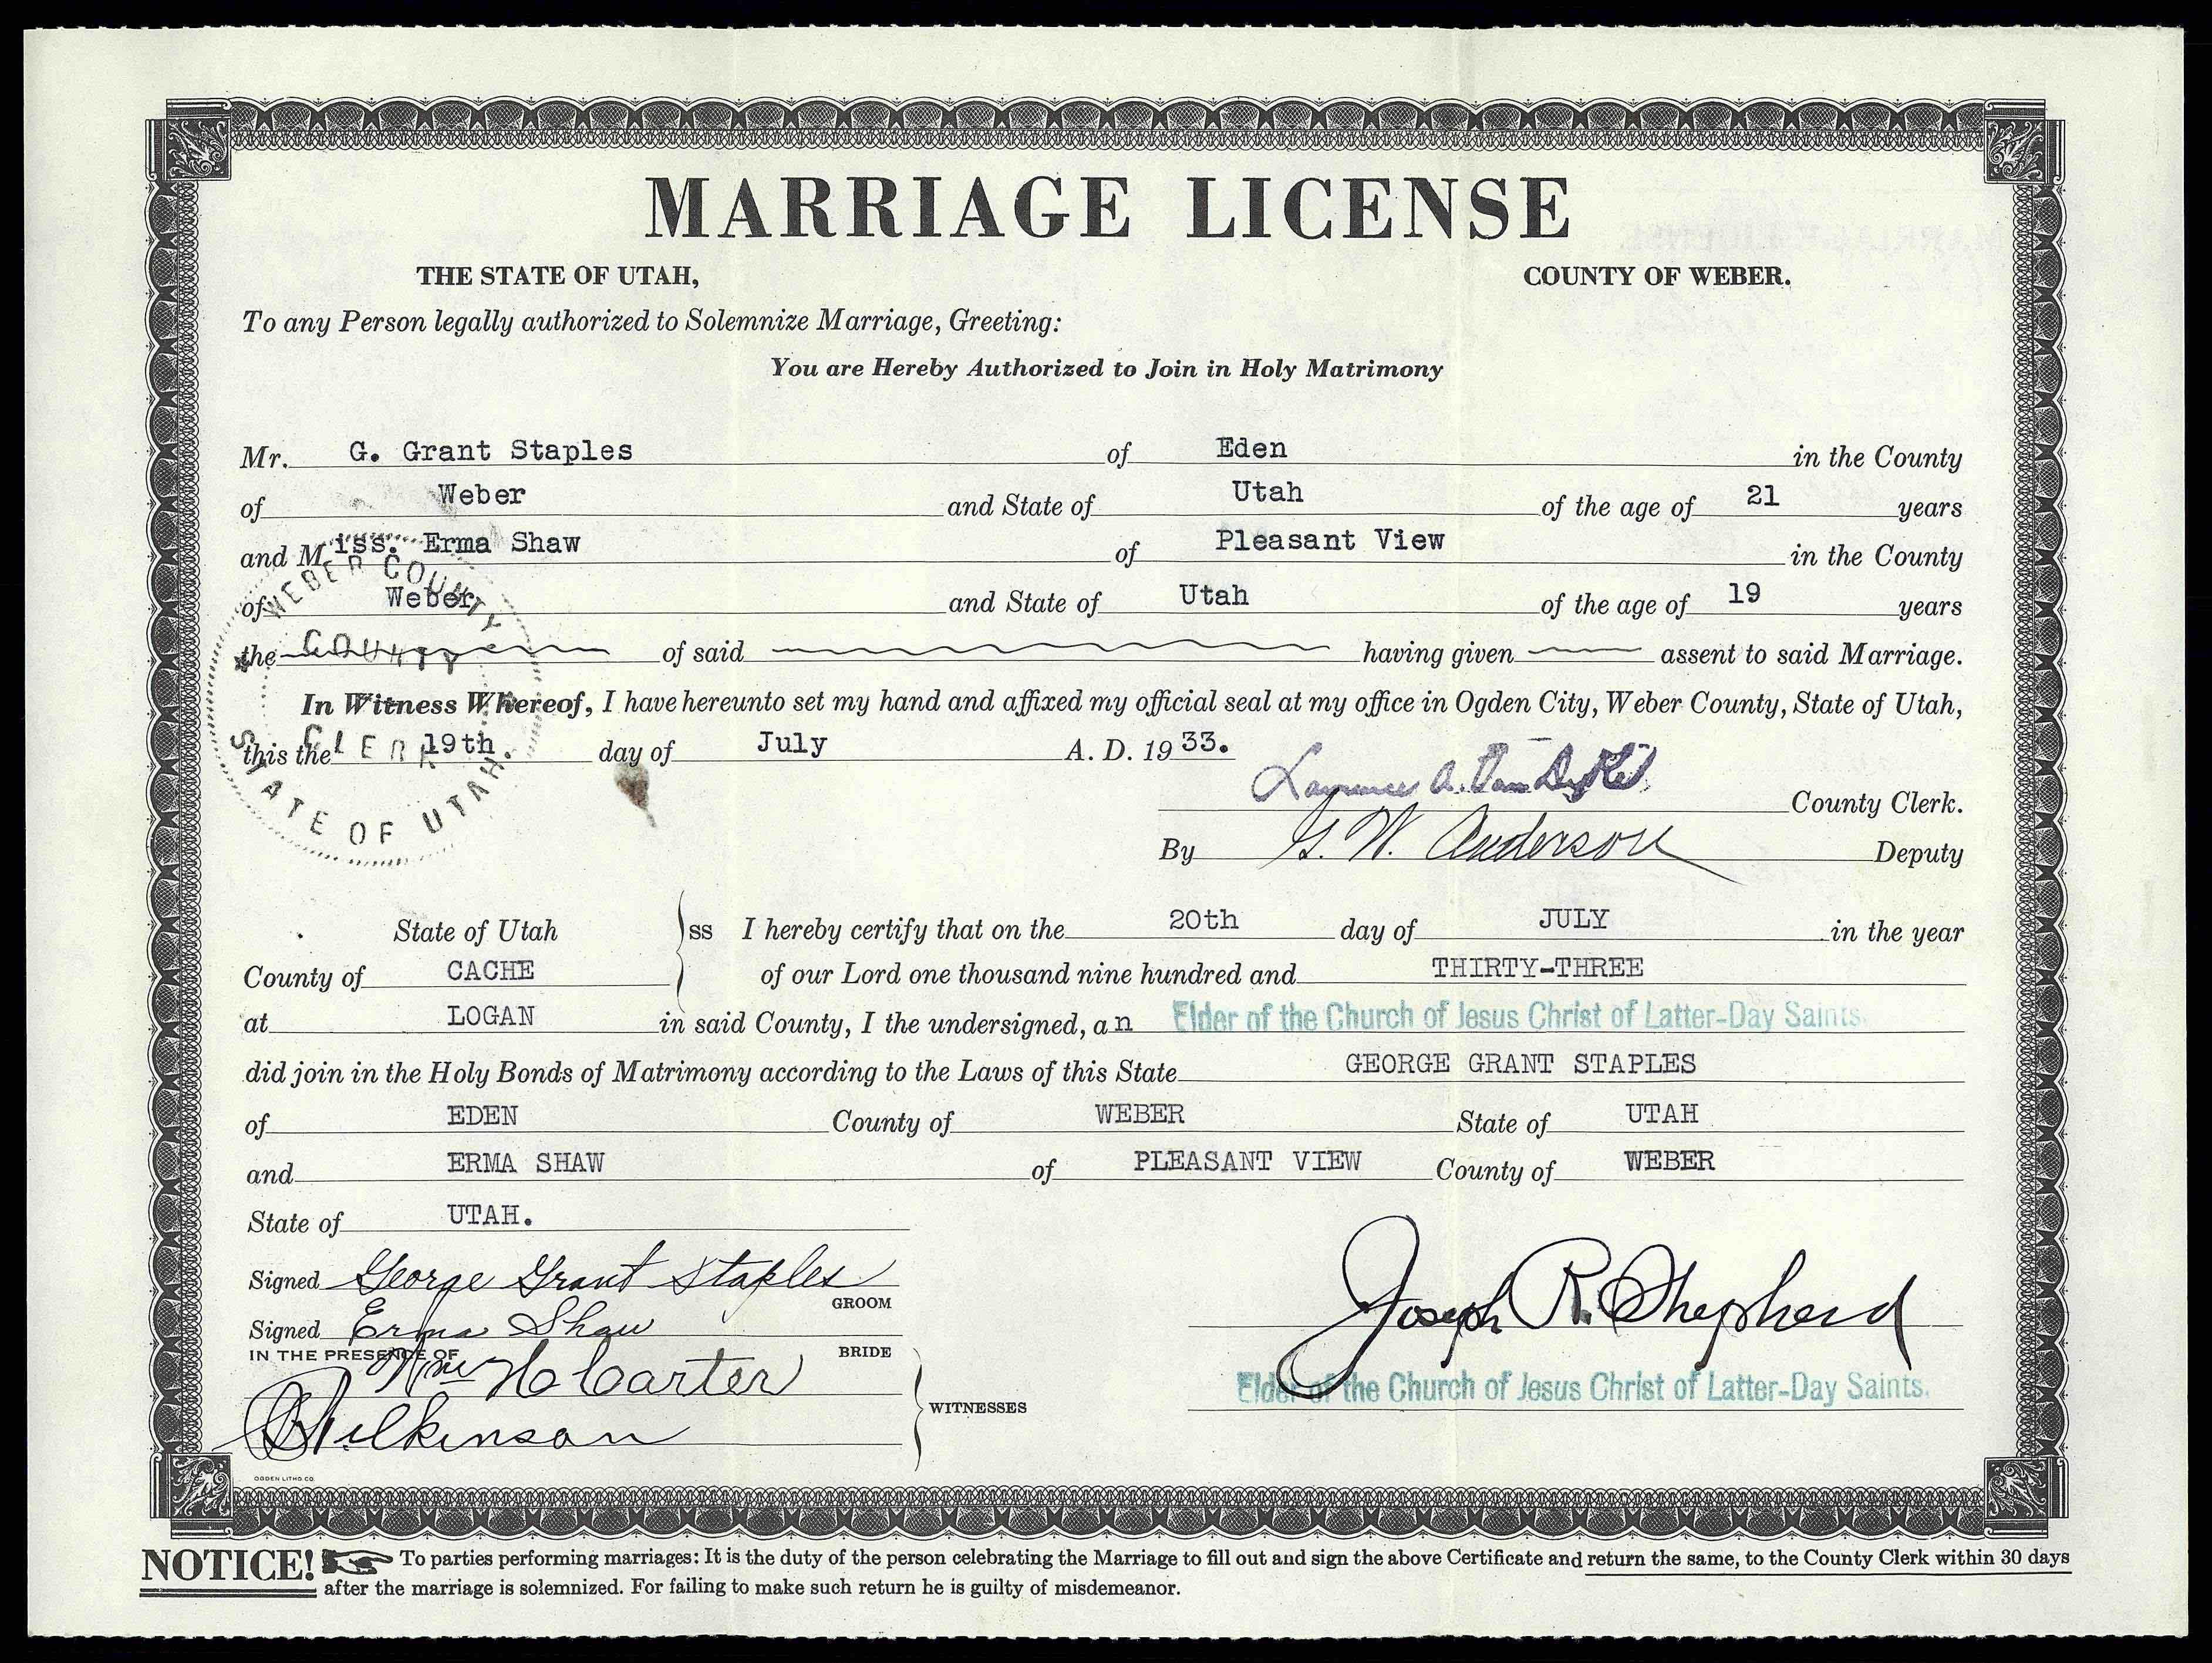 MARRIAGE LICENSE
THE STATE OF UTAH, COUNTY OF WEBER.
To any Person legally authorized to Solemnize Marriage, Greeting:
You are Hereby Authorized to Join in Holy Matrimony
Mr. G. Grant Staples of Eden in the County
of Weber and State of Utah of the age of 21 years
and Miss. Erma Shaw of Pleasant View in the County
of Weber and State of Utah of the age of 19 years
the of said having given assent to said Marriage.
In Witness Whereof, I have hereunto set my hand and affixed my official seal at my office in Ogden City, Weber County, State of Utah,
this the 19th day of July A. D. 1933.
WEBER COUNTY
COUNTY
CLERK
STATE OF UTAH
Lawrence A. Van Dyke County Clerk.
By G. W. Anderson Deputy
State of Utah ss I hereby certify that on the 20th day of JULY in the year
County of CACHE of our Lord one thousand nine hundred and THIRTY-THREE
at LOGAN in said County, I the undersigned, an Elder of the Church of Jesus Christ of Latter-Day Saints.
did join in the Holy Bonds of Matrimony according to the Laws of this State GEORGE GRANT STAPLES
of EDEN County of WEBER State of UTAH
and ERMA SHAW of PLEASANT VIEW County of WEBER
State of UTAH.
Signed George Grant Staples
GROOM
Signed Erma Shaw
IN THE PRESENCE OF BRIDE
Joseph R. Shepherd
Wm Carter
Elder of the Church of Jesus Christ of Latter-Day Saints.
WITNESSES
Wilkinson
OGDEN LITHO. CO.
NOTICE! To parties performing marriages: It is the duty of the person celebrating the Marriage to fill out and sign the above Certificate and return the same, to the County Clerk within 30 days
after the marriage is solemnized. For failing to make such return he is guilty of misdemeanor.